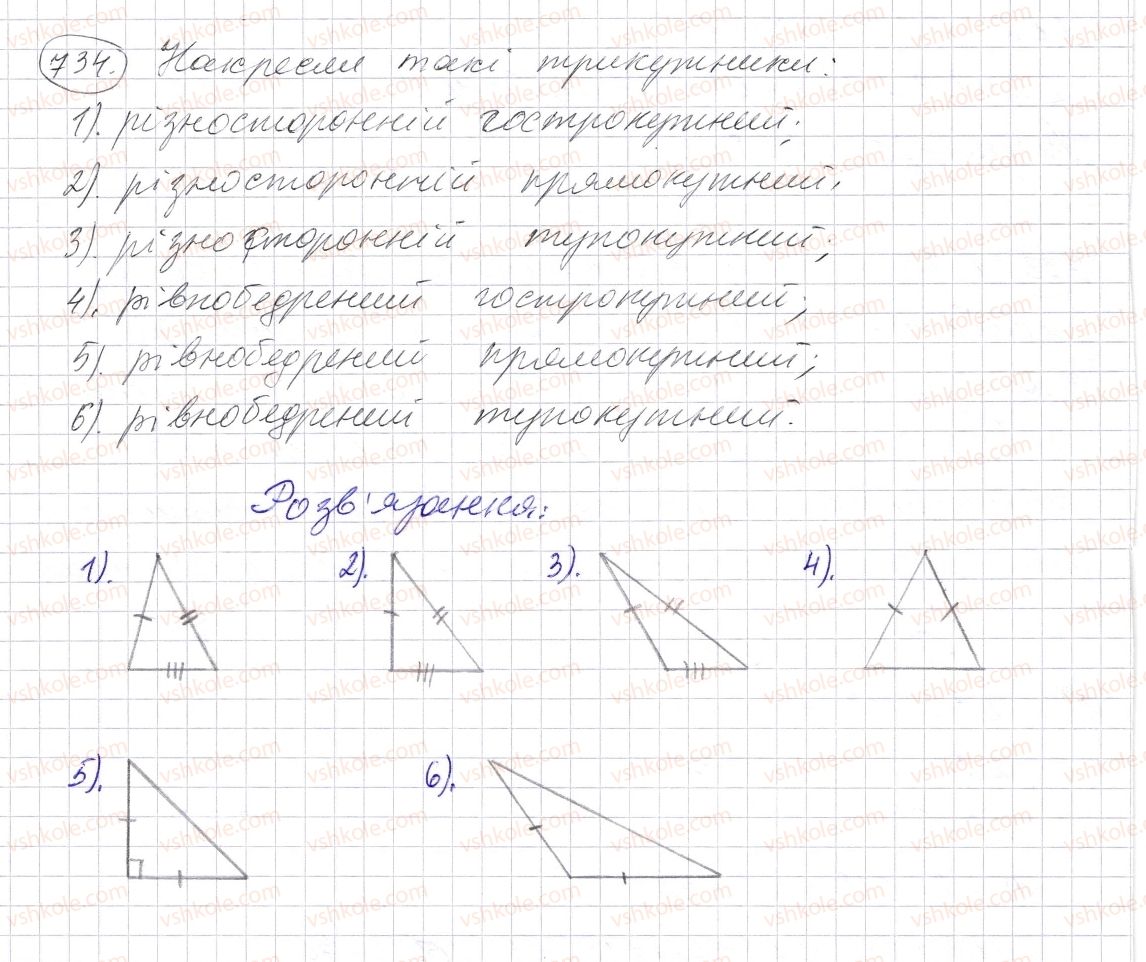 734. Накресли такі трикутники:
1). різносторонній гострокутний;
2). різносторонній прямокутний;
3). різносторонній тупокутний;
4). рівнобедрений гострокутний;
5). рівнобедрений прямокутний;
6). рівнобедрений тупокутний.
Розв'язання:
1). 2). 3). 4).
5). 6).
vshkole.com